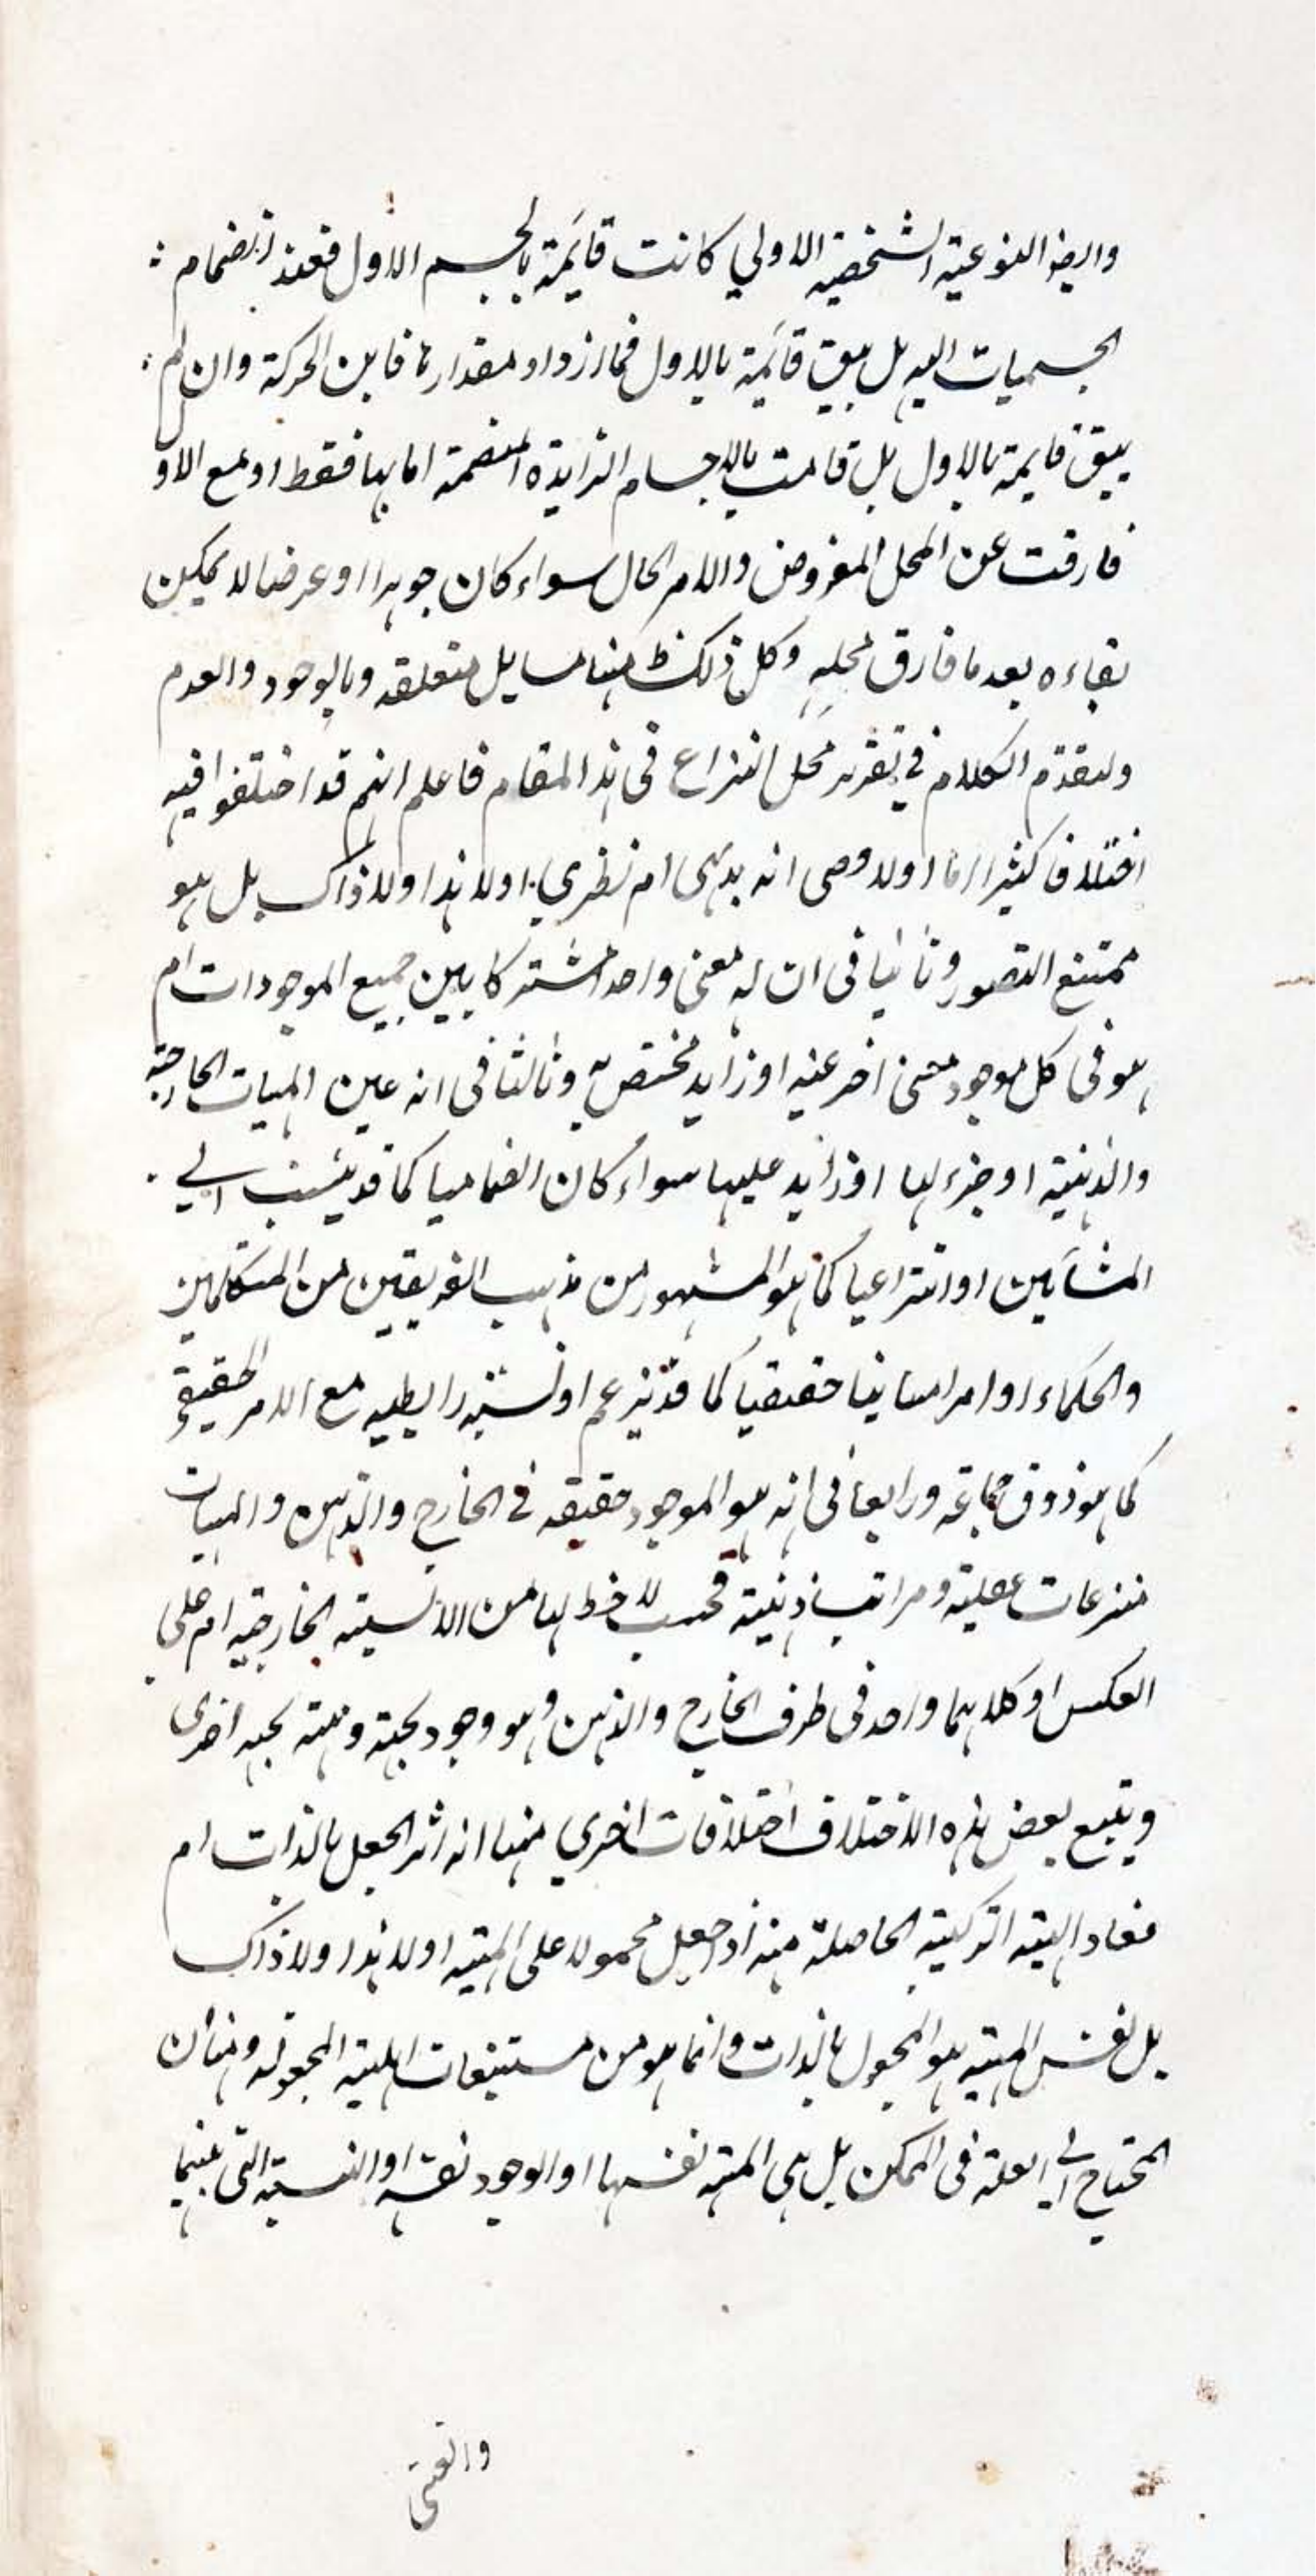 وايضا النوعية الشخصية الاولي كانت قائمة بالجسم الاول فعند انضمام
الجسميات اليه بل يبقى قائمة بالاول فما ازداد مقدارها فاين الحركة وان لم
يبق قايمة بالاول بل قامت بالاجسام الزايدة المنضمة اما بها فقط او مع الاول
فارقت عن المحل المفروض والامر الحال سواء كان جوهرا او عرضا لا يمكن
بقاءه بعد ما فارق محله وكل ذلك ههنا مسايل متعلقه وبالوجود والعدم
ولنقدم الكلام في تقرير محل النزاع في هذا المقام فاعلم انهم قد اختلفوا فيه
اختلافا كثيرا اما اولا وهي انه بديهي ام نظري اولا هذا ولا ذاك بل هو
ممتنع التصور وثانيا في ان له معنى واحد مشتركا بين جميع الموجودات ام
هو في كل موجود معنى اخر عينه او زايد مختص به وثالثا في انه عين المهيات الخارجية
والذهنية او جزء لها او زايد عليها سواء كان انضماميا كما قد ينسب الي
المشائين او انتزاعيا كما هو المشهور من مذهب الفريقين من المتكلمين
والحكماء او امرا مباينا حقيقيا كما قد يزعم او نسبة رابطيه مع الامر الحقيقي
كما هو ذوق جماعة ورابعا في انه هو الموجود حقيقه في الخارج والذهن والمهيات
منتزعات عقلية ومراتب ذهنية فحسب لا حظ لها من الايسية الخارجيه ام علي
العكس او كلاهما واحد في ظرف الخارج والذهن وهو وجود بجهة ومهية بجهه اخرى
ويتبع بعض هذه الاختلاف اختلافات اخري منها انه اثر الجعل بالذات ام
مفاد الهيئة التركيبية الحاصلة منه اذا جعل محمولا على المهية اولا هذا ولا ذاك
بل نفس المهية هو المجعول بالذات وانما هو من مستتبعات المهية المجعوله ومنها ان
المحتاج الي العلة في الممكن بل هي المهية نفسها او الوجود نفسه او النسبة التي بينهما